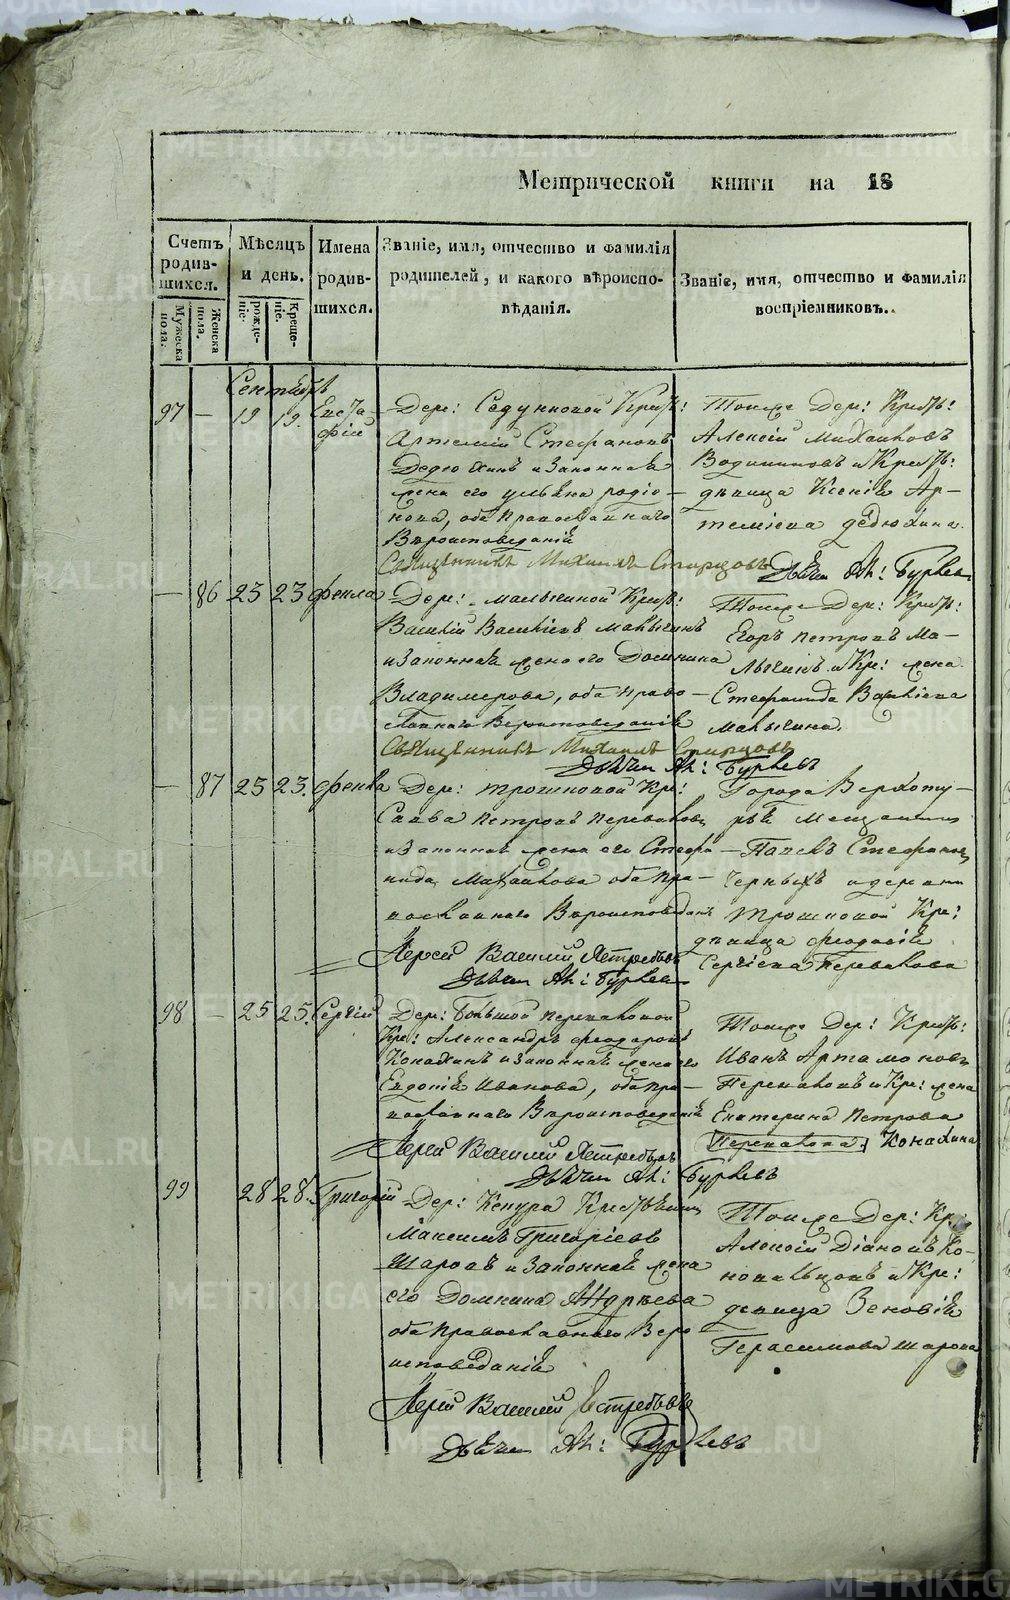 Метрической книги на 18
Счетъ родившихся.
Мужеска пола.
Женска пола.
Мѣсяцъ и день.
рожденіе.
Крещеніе.
Имена родившихся.
Званіе, имя, отчество и фамилія родителей, и какого вѣроисповѣданія.
Званіе, имя, отчество и фамилія воспріемниковъ.
Сентябрь
97 — 19 19. Евстафій
Дер: Седунновой Крест:
Артемій Стефановъ
Дедюхинъ и Законная
жена его Ульяна Родіо-
нова, оба Православнаго
Вѣроисповѣданія
Священникъ Михаилъ Старцовъ
Тойже Дер: Крест:
Алексій Михайловъ
Водинниковъ и Крест:
дѣвица Ксенія Ар-
теміева Дедюхина.
Дьячек Ал: Бурлевъ
— 86 23 23 Фекла
Дер: Малыгиной Крест:
Василій Василіевъ Малыгинъ
и Законная жена его Домнина
Владимерова, оба Право-
славнаго Вероисповеданія
Священникъ Михаилъ Старцовъ
Дьячек Ал: Бурлевъ
Тойже Дер: Крест:
Егоръ Петровъ Ма-
лыгинъ и Кре: жена
Стефанида Василіева
Малыгина.
— 87 25 23. Фекла
Дер: Трошковой Кре:
Савва Петровъ Перевалов
и Законная жена его Стефа-
нида Михайлова оба Пра-
вославнаго Вероисповедан
Іерей Василій Ястребовъ
Дьячек Ал: Бурлев
Города Верхоту-
рья Мещанинъ
Павелъ Стефанов
Черныхъ и деревни
Трошковой Кре:
дѣвица Феодосія
Сергіева Перевалова
98 — 25 25. Сергій
Дер: Большой Переваловой
Кре: Александръ Феодоровъ
Конахинъ и Законная жена его
Евдокія Иванова, оба Пра-
вославнаго Вероисповеданія
Іерей Василій Ястребовъ
Дьячек Ал: Бурлевъ
Тойже Дер: Крест:
Иванъ Артамоновъ
Переваловъ и Кре: жена
Екатерина Петрова
Перевалова. Конахина
99 28 28. Григорій
Дер: Кекура Крестьянин
Максимъ Григоріевъ
Шаровъ и Законная жена
его Домнина Андреева
оба Православнаго Веро
исповеданія
Іерей Василій Ястребовъ
Дьячек Ал: Бурлевъ
Тойже Дер: Кр
Алексій Діановъ Ко-
новальцовъ и Кре:
девица Зеновія
Герасимова Шарова
METRIKI.GASO-URAL.RU